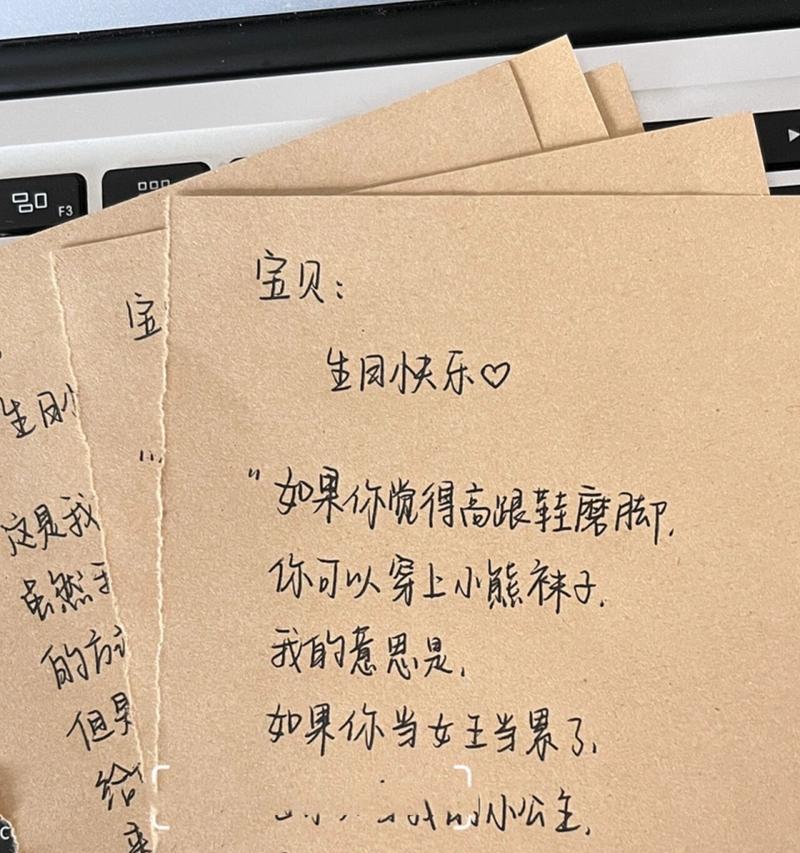 F3
宝贝:
生日快乐♡
"如果你觉得高跟鞋磨脚,
你可以穿上小熊袜子,
我的意思是,
如果你当女王当累了,
小公主,
宝
生日
这是我
虽然
的方
但是
给